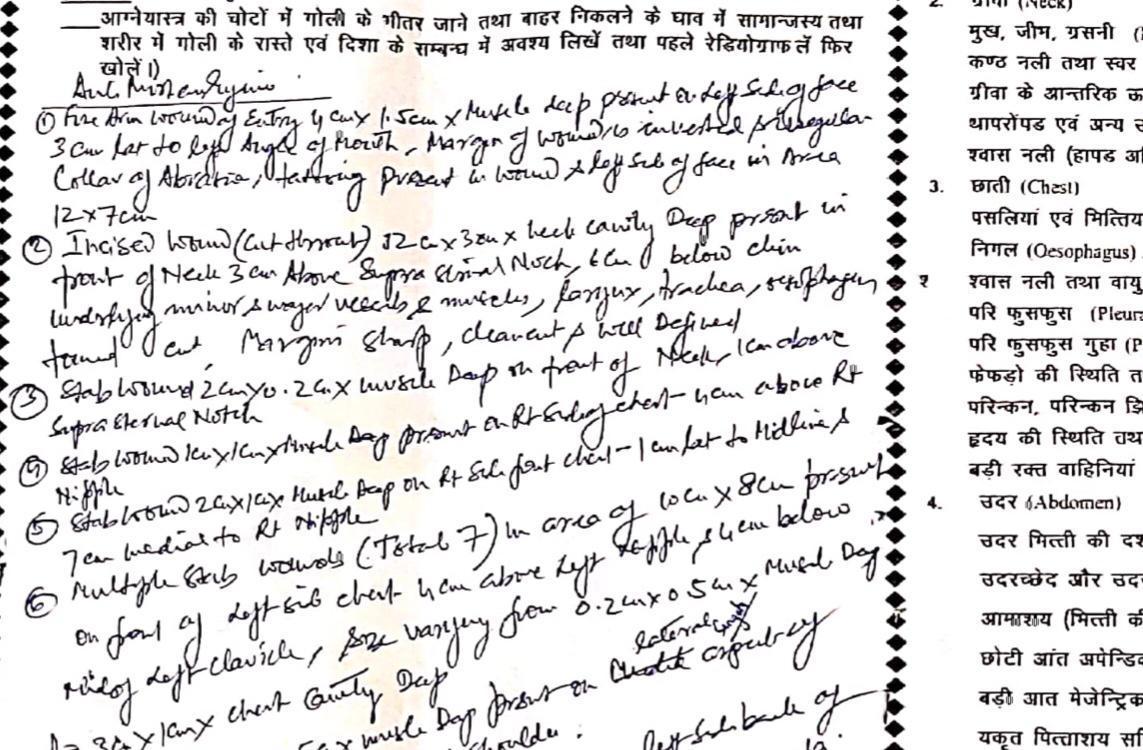 आग्नेयास्त्र की चोटों में गोली के भीतर जाने तथा बाहर निकलने के घाव में सामान्जस्य तथा
शरीर में गोली के रास्ते एवं दिशा के सम्बन्ध में अवश्य लिखें तथा पहले रेडियोग्राफ लें फिर
खोलें।)
① Fire Arm wound of Entry 4 cm x 1.5cm x Muscle deep present on Left Side of face
3 cm lat to left Angle of Mouth, Margin of wound is inverted & irregular
Collar of Abrasion, tattooing Present in wound & left side of face in Area
12 x 7cm
② Incised wound (cut throat) 12 cm x 3cm x neck cavity Deep present in
front of Neck 3 cm Above Supra sternal Notch, 6cm below chin
underlying minor & major vessels & muscles, larynx, trachea, oesophagus
found cut, Margins sharp, cleancut & well Defined
③ Stab wound 2cm x 0.2cm x muscle Deep on front of Neck, 1cm above
Supra sternal Notch
④ Stab wound 1cm x 1cm x Muscle Deep present on Rt Side of chest 4cm above Rt
Nipple
⑤ Stab wound 2cm x 1cm x Muscle Deep on Rt Side front chest 1cm lat to Midline &
7cm medial to Rt Nipple
⑥ Multiple Stab wounds (Total 7) in area of 10cm x 8cm present
on front of Left side chest 4cm above Left Nipple, & 4cm below
mid of Left clavicle, size varying from 0.2cm x 0.5cm x Muscle Deep
3cm x 1cm x chest Cavity Deep
x muscle Deep present on lateral
shoulder.
Left side back of
2. ग्रीवा (Neck)
मुख, जीभ, ग्रसनी
कण्ठ नली तथा स्वर
ग्रीवा के आन्तरिक
थापरोंपड एवं अन्य
श्वास नली (हापड
3. छाती (Chest)
पसलियां एवं मित्तिय
निगल (Oesophagus)
२ श्वास नली तथा वायु
परि फुसफुस (Pleur
परि फुसफुस गुहा (P
फेफड़ो की स्थिति त
परिन्कन, परिन्कन
हृदय की स्थिति तथ
बड़ी रक्त वाहिनियां
4. उदर (Abdomen)
उदर मित्ती की दश
उदरच्छेद और उद
आमाशय (मित्ती की
छोटी आंत अपेन्डि
बड़ी आत मेजेन्ट्रिक
यकृत पित्ताशय